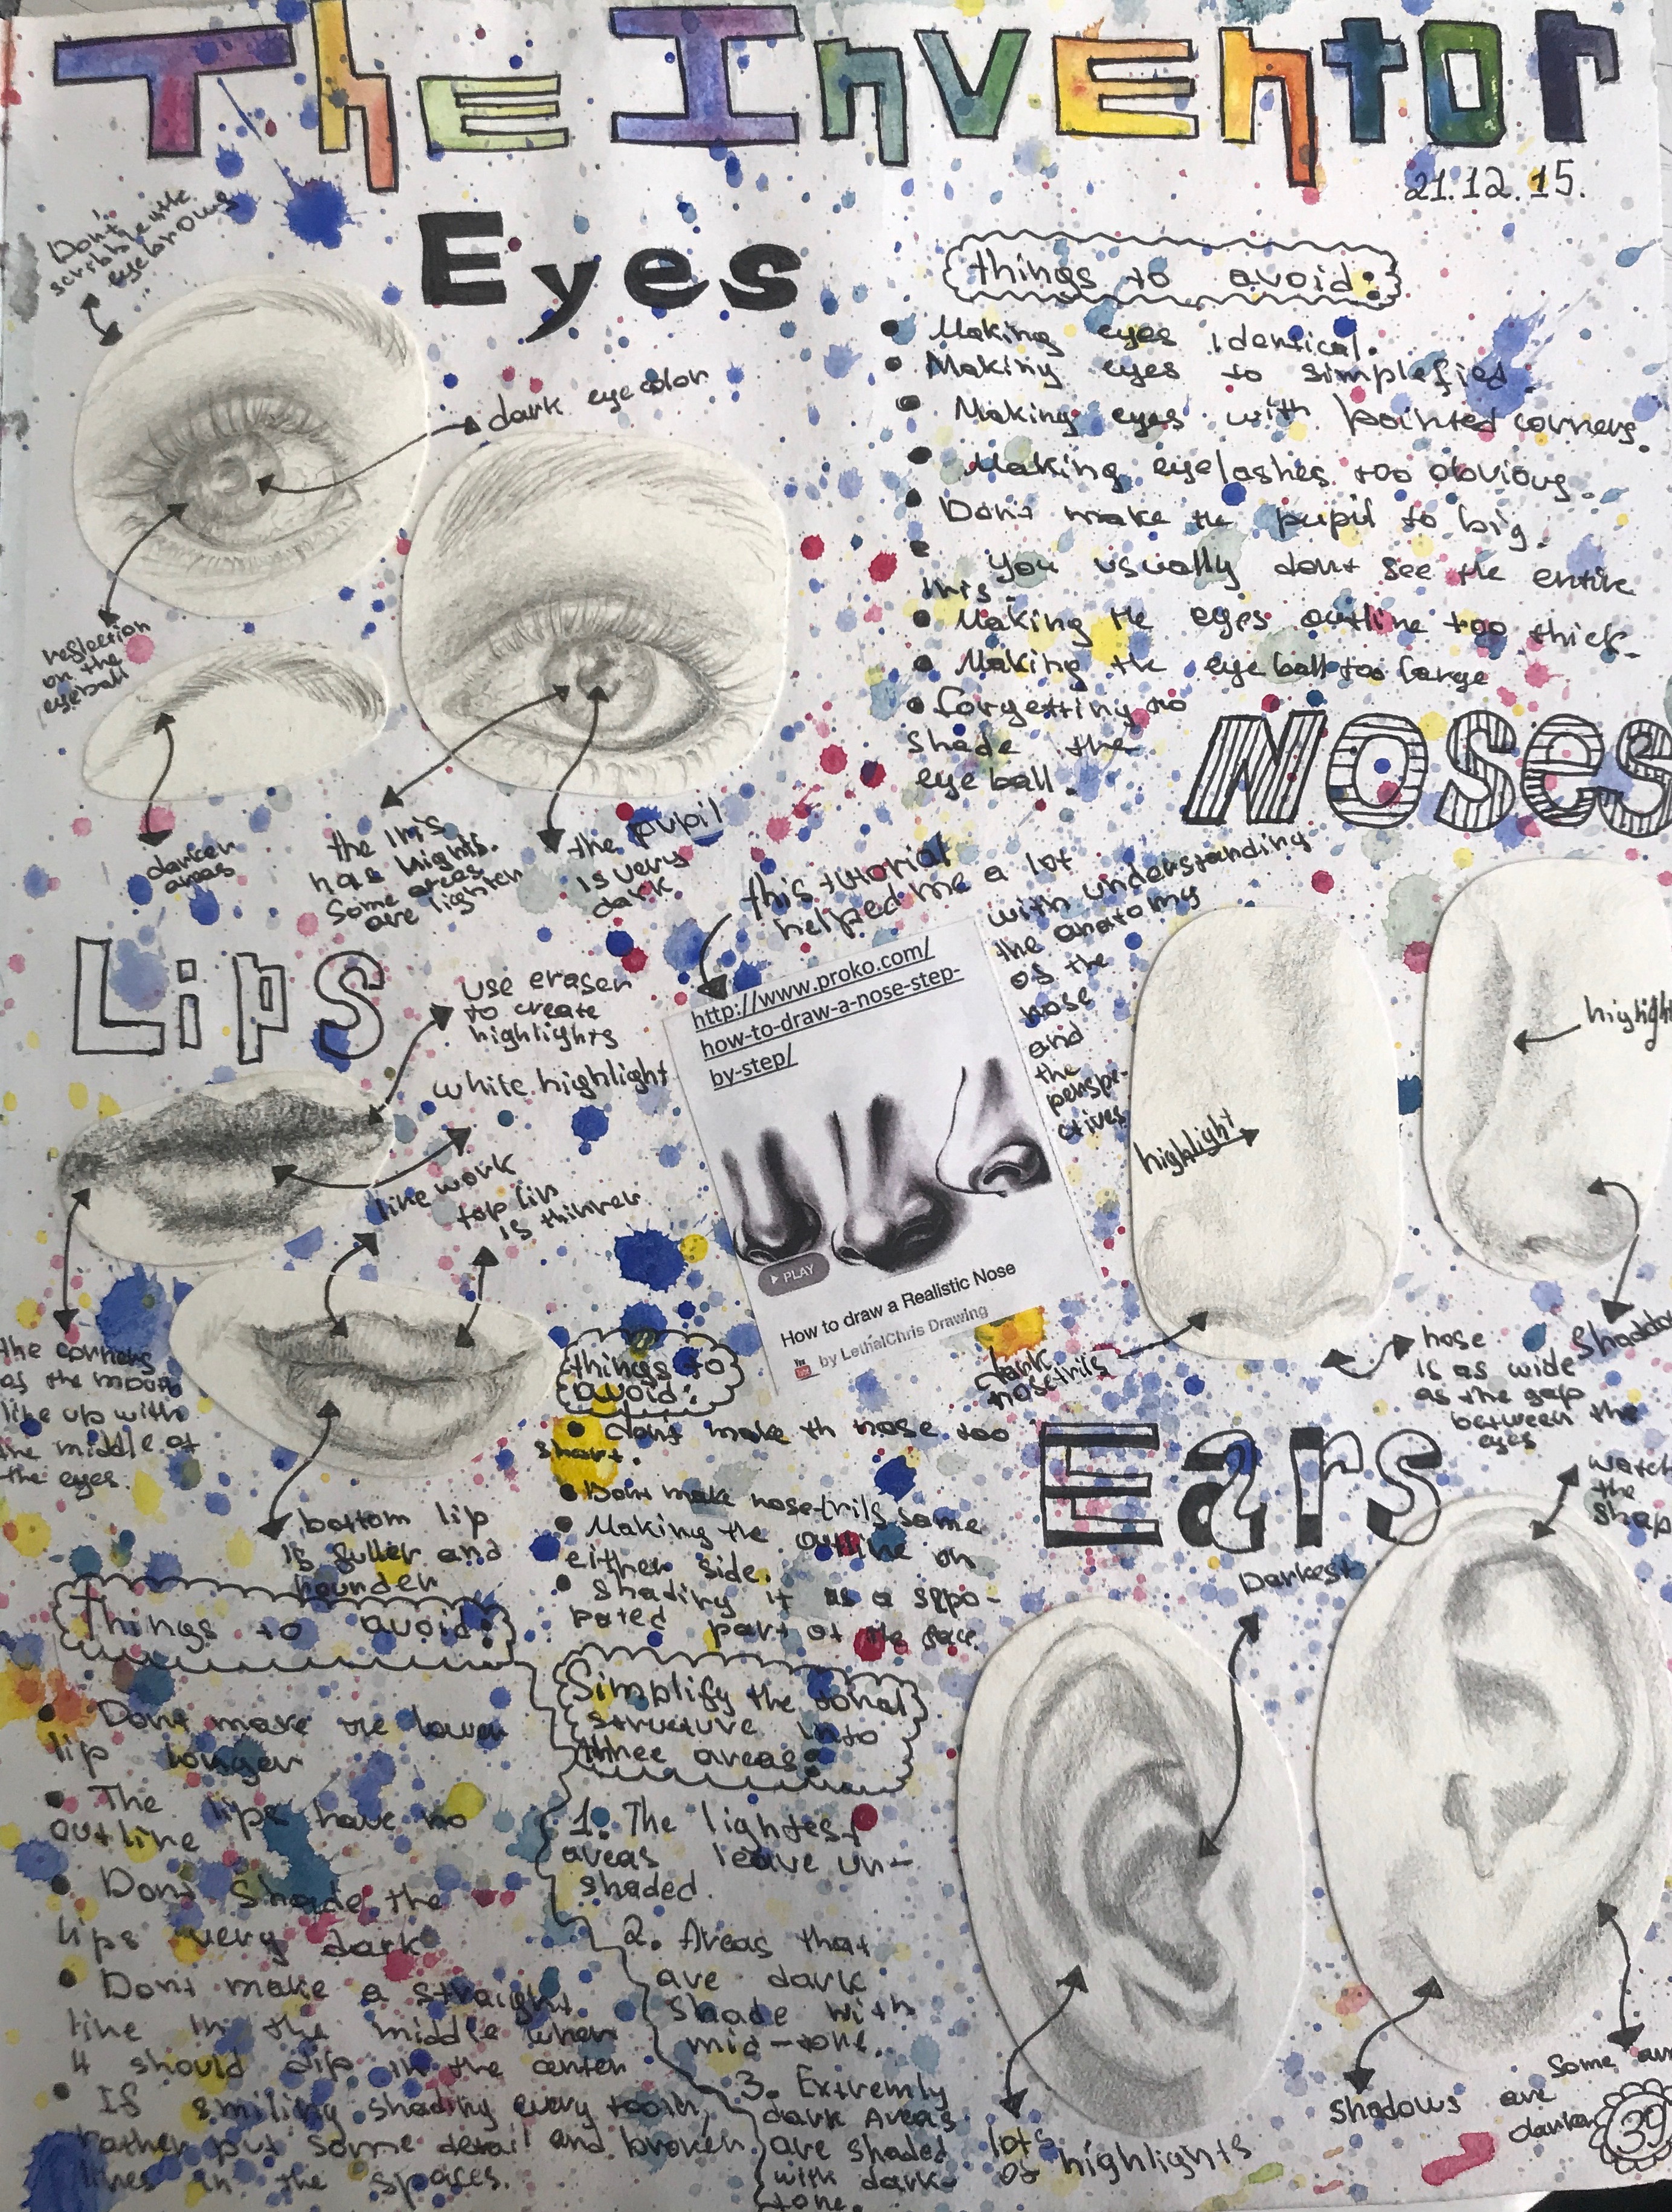 The Inventor
21.12.15.
Eyes
Don't
scribble the
eyebrows
dark eye color
reflection
on the
eyeball
darker
areas
the Iris
has hights.
Some areas
are lighter
the pupil
is very
dark.
things to avoid:
• Making eyes identical.
• Making eyes to simplefied.
• Making eyes with pointed corners.
• Making eyelashes too obvious.
• Dont make the pupil to big.
• You usually dont see the entire
Iris.
• Making the eyes outline too thick.
• Making the eye ball too large
• forgetting to
shade the
eye ball.
Noses
this tutorial
helped me a lot
with understanding
the anatomy
of the
nose
and
the
perspe-
ctives
http://www.proko.com/
how-to-draw-a-nose-step-
by-step/
PLAY
How to draw a Realistic Nose
by LethalChris Drawing
highlight
highlight
Shaddo
dark
nosetrils
nose
is as wide
as the gap
between the
eyes
Lips
use eraser
to create
highlights
white highlight
line work
top lip
is thinner
the corners
of the mouth
line up with
the middle of
the eyes.
bottom lip
is fuller and
rounder
things to
avoid:
• dont make th nose too
short.
• Dont make nosetrils same
• Making the outline on
either side.
• Shading it as a seppo-
rated part of the face.
Things to avoid:
• Dont make the lower
lip longer
• The lips have no
outline
• Dont shade the
lips very dark
• Dont make a straight
line in the middle when
4 should dip in the center
• If smiling shading every tooth,
rather put some detail and broken
lines in the spaces.
Simplify the tonal
structure into
three areas:
1. The lightest
areas leave un-
shaded.
2. Areas that
are dark
shade with
mid-tone.
3. Extremly
dark Areas
are shaded
with dark
tone.
Ears
watch
the
shap
Darkest
lots
of highlights
Shadows
Some are
are
darker
39